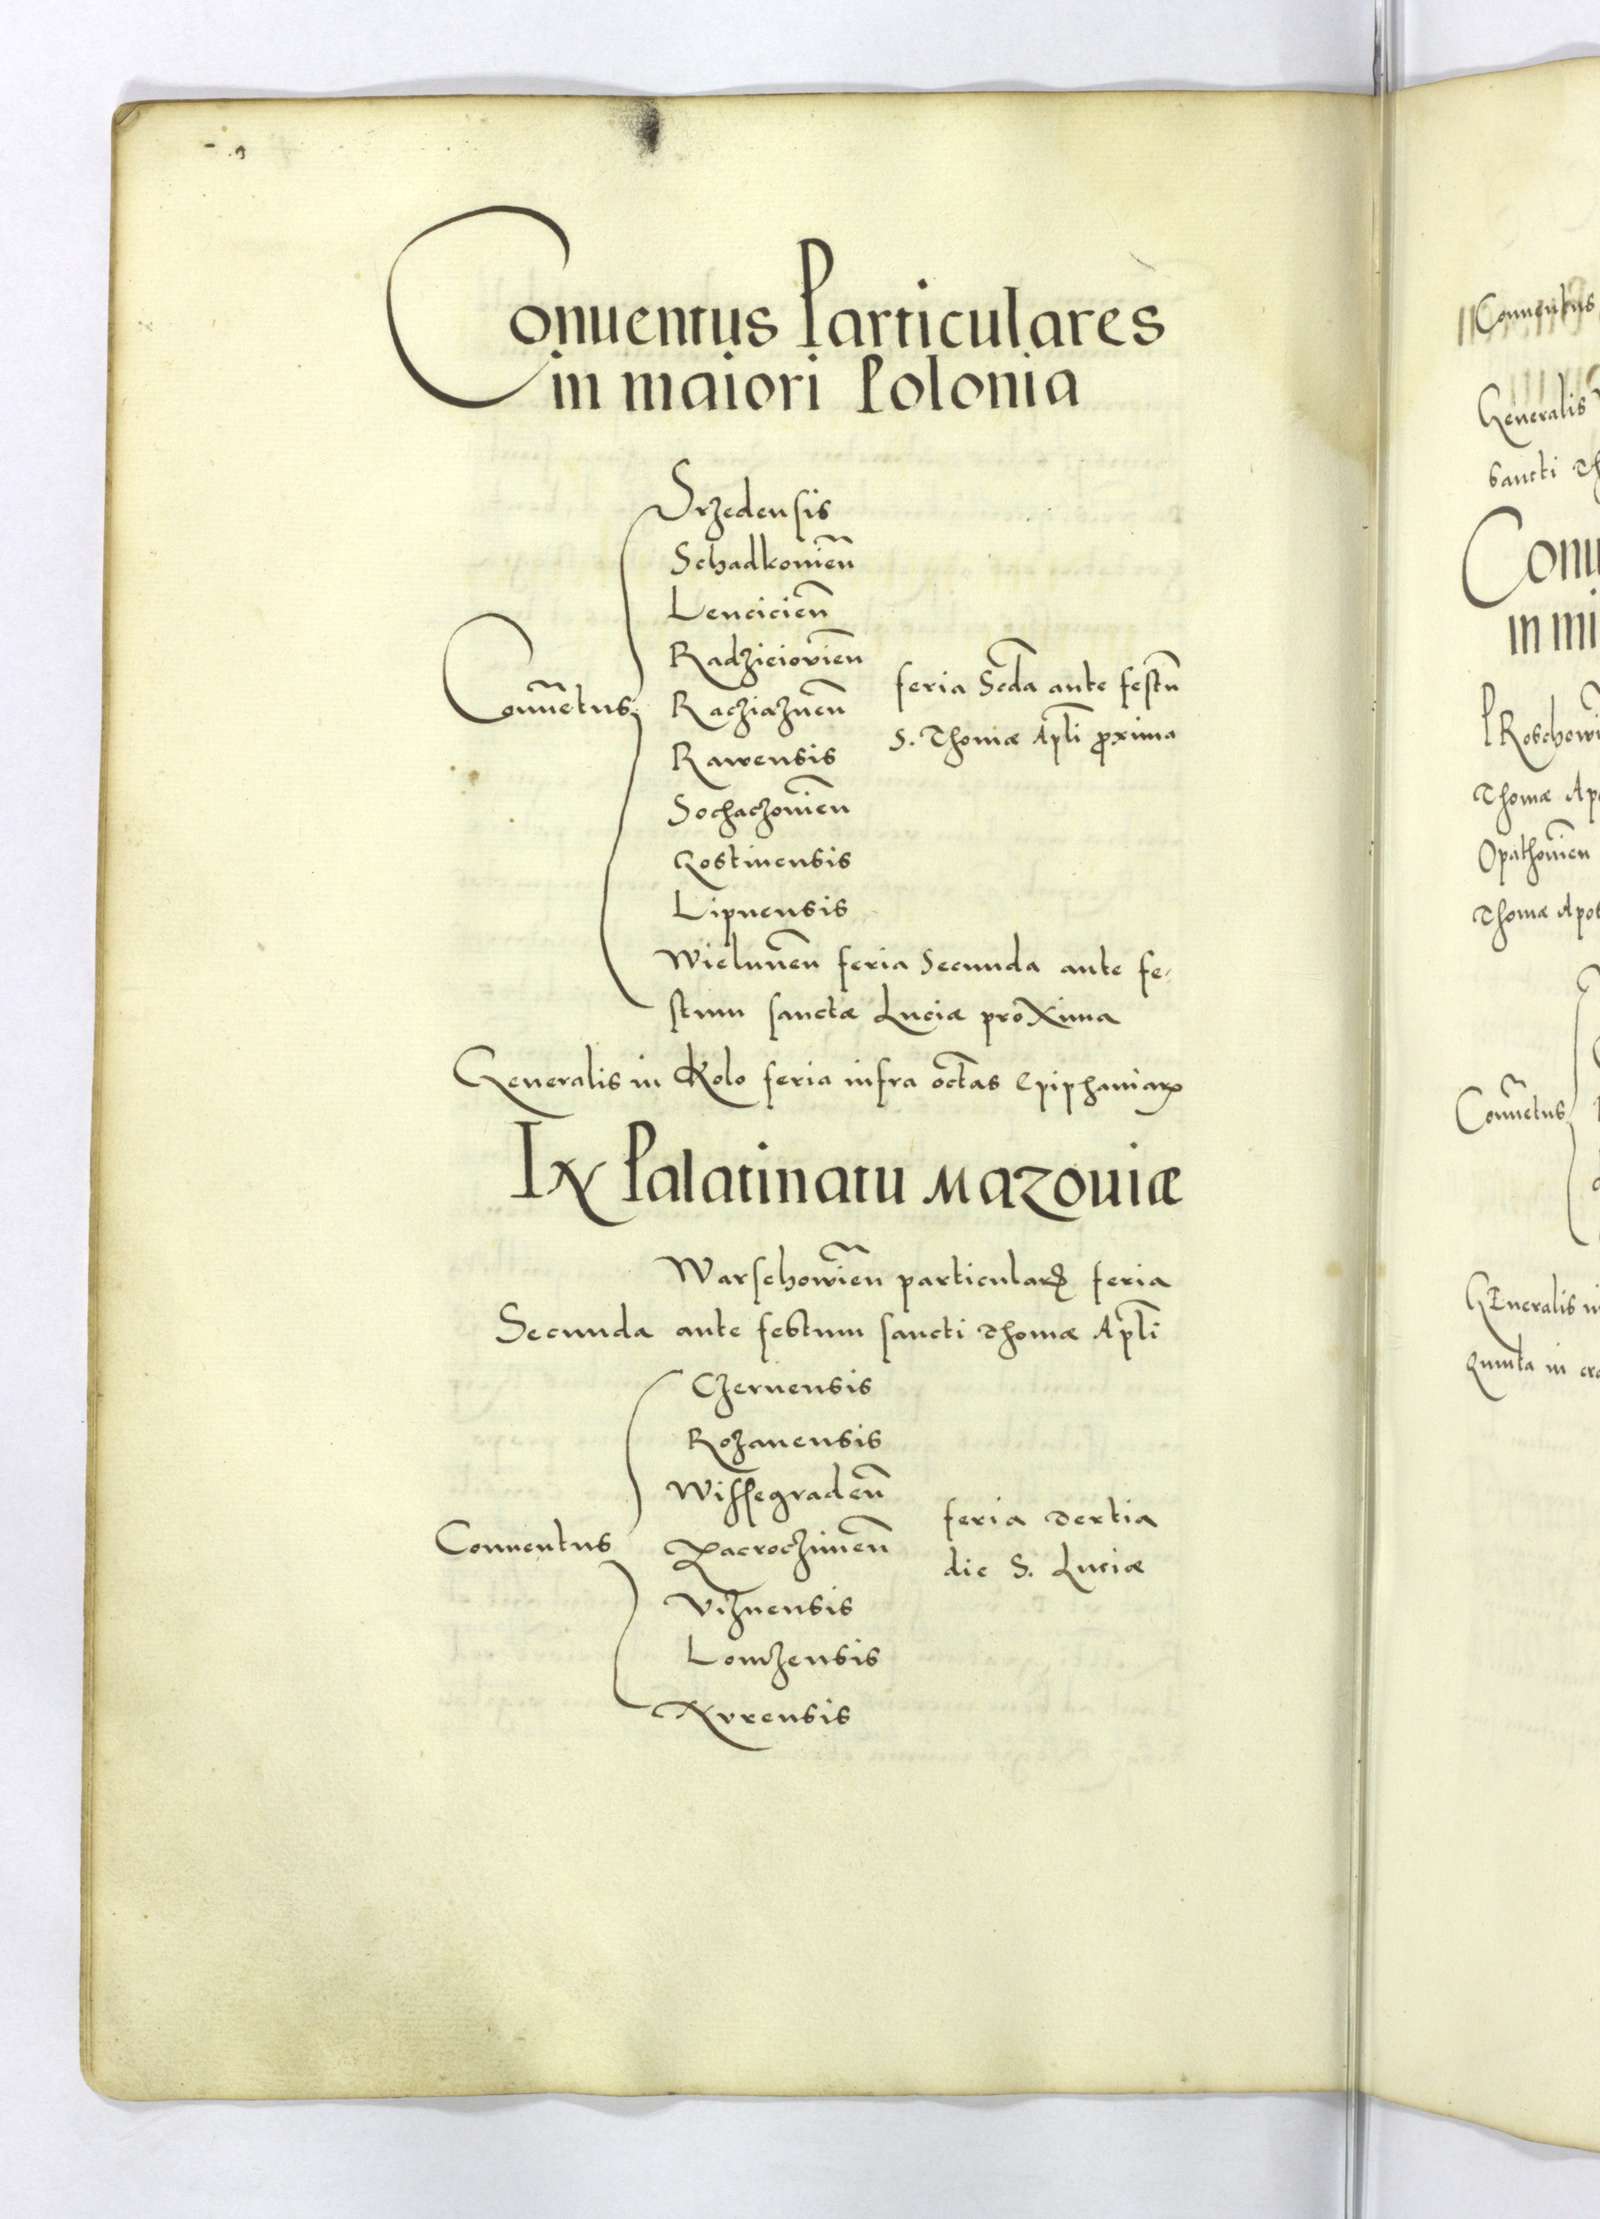 Conuentus Particulares
in maiori Polonia
Srzedensis
Schadkouien̄
Lencicien̄
Radzieiovien̄
Conuētus
Racziaznen̄
feria Scďa ante festū
S. Thomæ Apłi ꝓxima
Rawensis
Sochaczouien̄
Gostinensis
Lipnensis
Wielunen̄ feria Secunda ante fe-
stum sanctæ Luciæ proxima
Generalis in Kolo feria infra oct̄as Epiphaniaꝝ
In Palatinatu Mazouiæ
Warschowien̄ particularꝭ feria
Secunda ante festum sancti Thomæ Apłi
Czernensis
Rozanensis
Wissegraden̄
feria Tertia
Conuentus
Zacroczimen̄
die S. Luciæ
Viznensis
Lomzensis
Nurensis
Conuentus
Generalis
Sancti Th
Conu
in mi
PRoschowi
Thomæ Apo
Opathouien̄
Thomæ Apos
Conuētus
GEneralis in
Quinta in cra